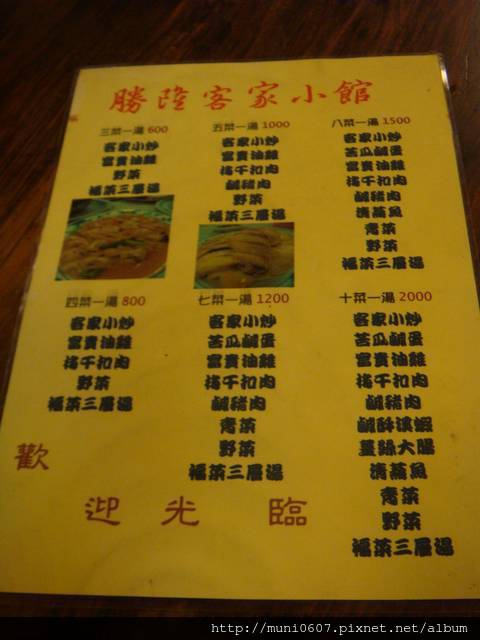 勝隆客家小館
三菜一湯 600
客家小炒
富貴油雞
野菜
福菜三層湯
五菜一湯 1000
客家小炒
富貴油雞
梅干扣肉
鹹豬肉
野菜
福菜三層湯
八菜一湯 1500
客家小炒
苦瓜鹹蛋
富貴油雞
梅干扣肉
鹹豬肉
清蒸魚
青菜
野菜
福菜三層湯
四菜一湯 800
客家小炒
富貴油雞
梅干扣肉
野菜
福菜三層湯
七菜一湯 1200
客家小炒
苦瓜鹹蛋
富貴油雞
梅干扣肉
鹹豬肉
青菜
野菜
福菜三層湯
十菜一湯 2000
客家小炒
苦瓜鹹蛋
富貴油雞
梅干扣肉
鹹豬肉
鹹酥溪蝦
薑絲大腸
清蒸魚
青菜
野菜
福菜三層湯
歡迎光臨
http://muni0607.pixnet.net/album